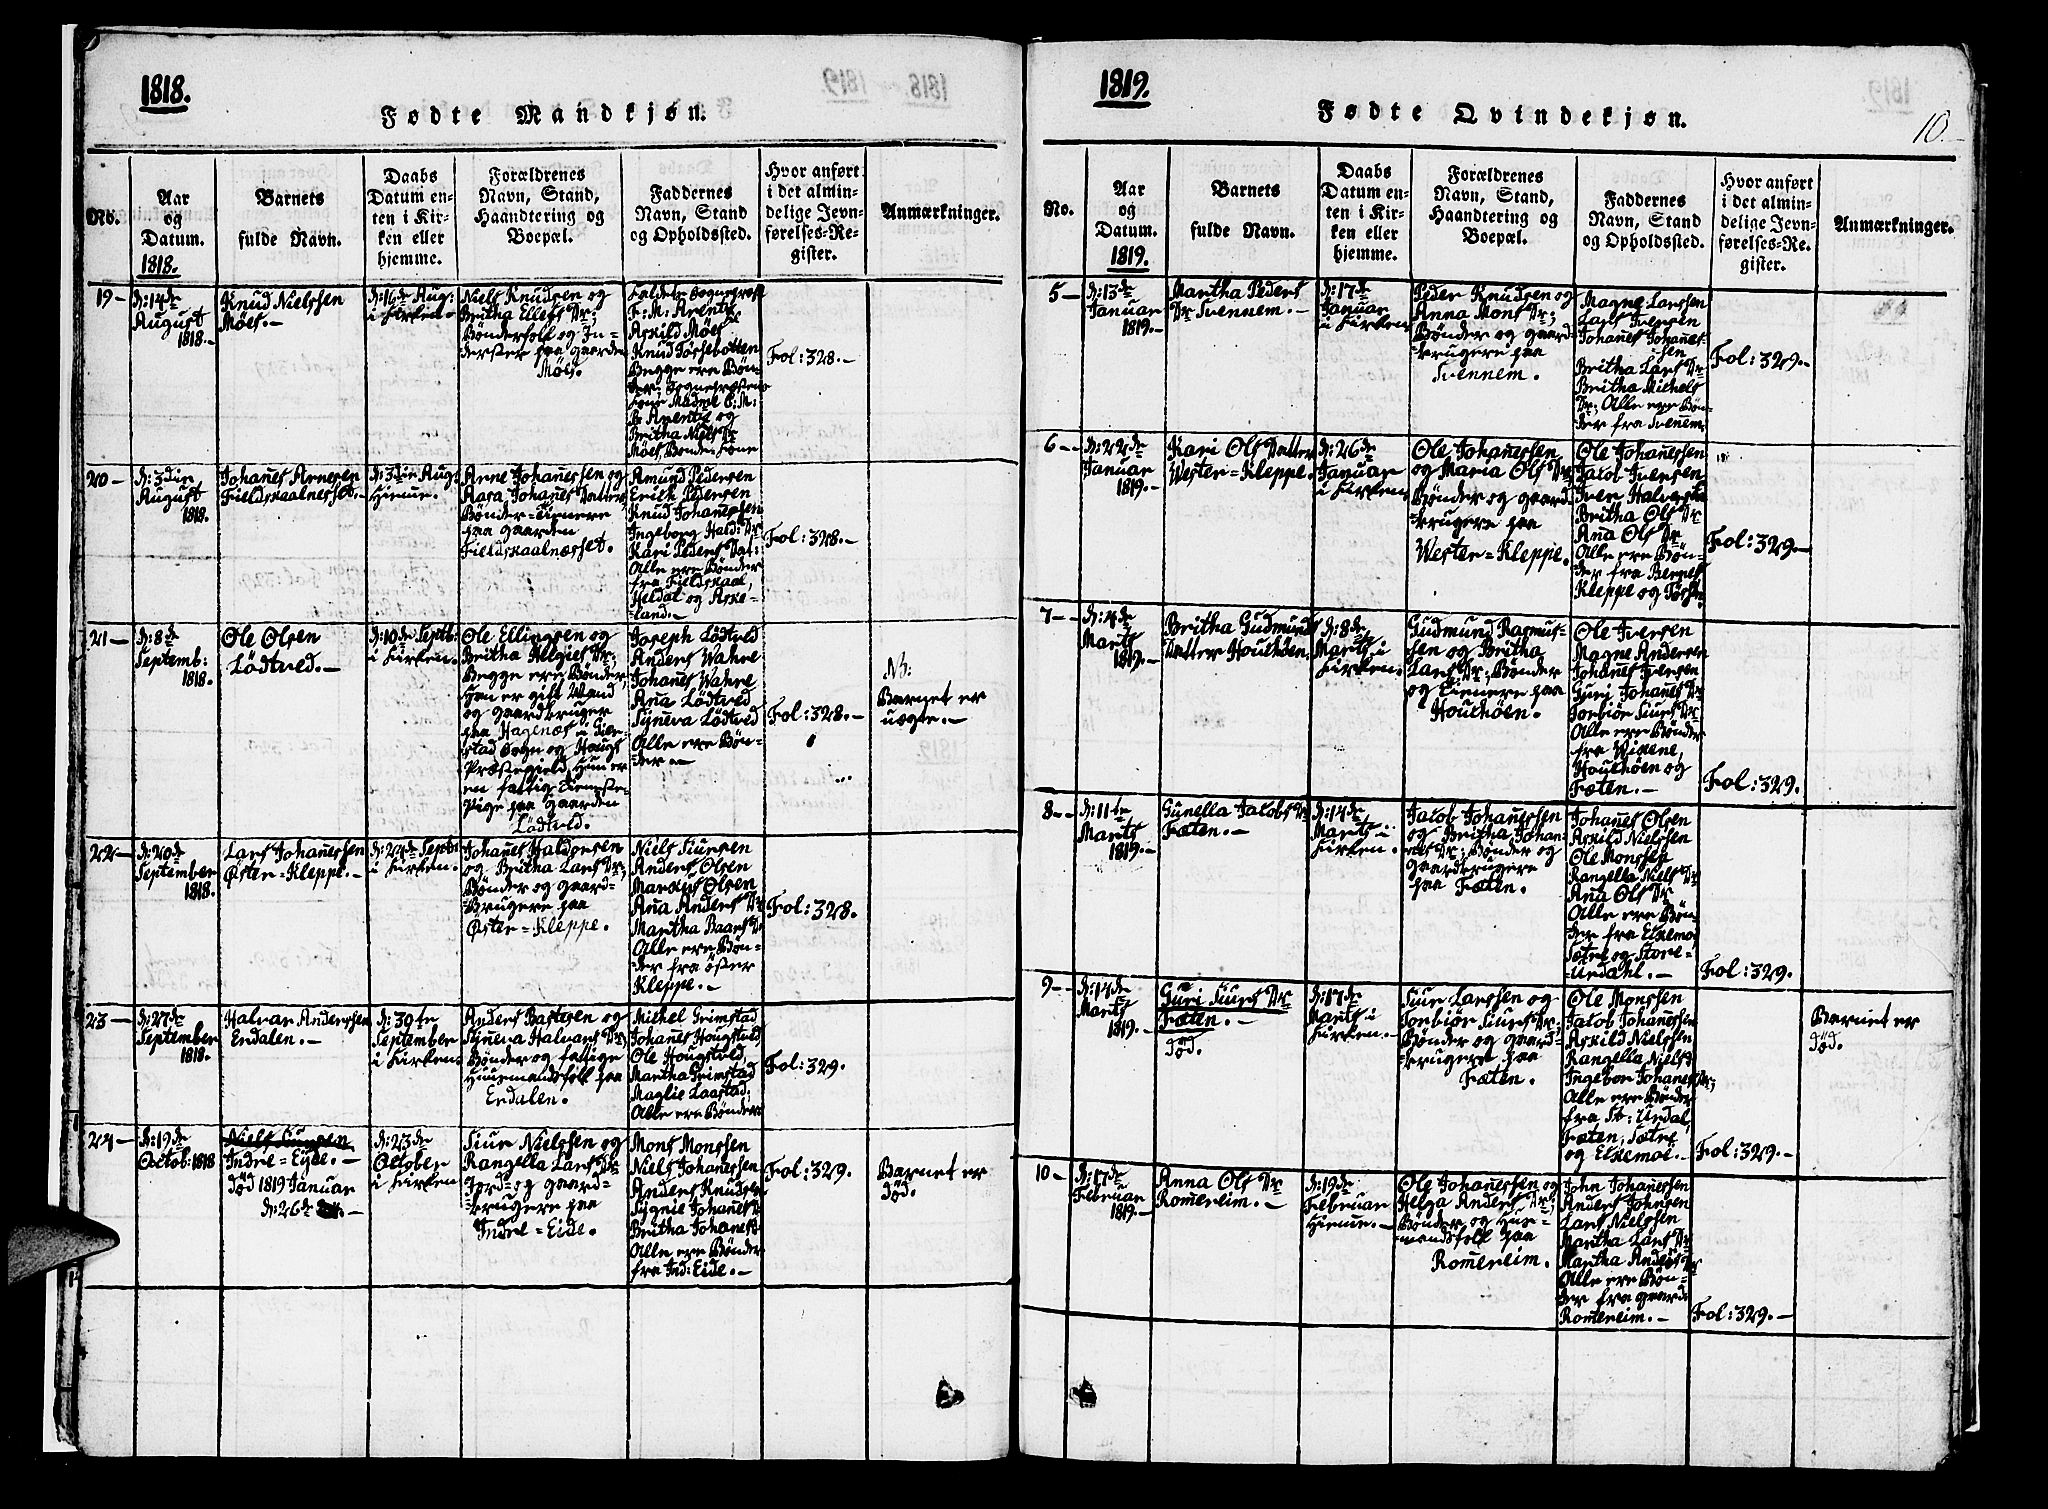 1818.
Fødte Mandkjøn.
No.
Aar
og
Datum.
1818.
Barnets
fulde Navn.
Daabs
Datum en-
ten i Kir-
ken eller
hjemme.
Forældrenes
Navn, Stand,
Haandtering og
Boepæl.
Faddernes
Navn, Stand
og Opholdssted.
Hvor anført
i det almin-
delige Jevn-
førelses-Re-
gister.
Anmærkninger.
19-
d: 14de
August
1818.-
Knud Nielssen
Möes.-
d: 16de Aug:
i Kirken-
Niels Knudsen og
Britha Ellefs Dr:
Bönderfolk og In-
derster paa gaarden
Möes.
F: M: Arentz
Askild Möes
Knud Törsebotten
Begge ere Bön-
der;
B: Arentz og
Britha Niels Dr
Möes, Bonde Kone
Fol: 328.-
20-
d: 3die
August
1818.
Johanes Arnesen
Fieldskaalnesset.-
d: 3die Aug:
Hieme.-
Arne Johanessen og
Aasa Johanes Datter
Bönder-Tienere
paa gaarden
Fieldskaalnæsset.
Amund Pedersen
Erich Pedersen
Knud Johanessen
Ingeborg Hald: Dr
Kari Peders Dat:
Alle ere Bönder
fra Fieldskaal,
Heldal og Aske-
land.-
Fol: 328.-
21-
d: 8de
Septemb:
1818.
Ole Olsen
Lödtved.-
d: 10de Septb:
i Kirken.
Ole Ellingsen og
Britha Helgies Dr;
Begge ere Bönder,
Han er gift Mand
og gaardbruger
paa Hagenæs i Gier-
stad Sogn og Hougs
Præstegield, Hun er
en fattig Tieneste-
Pige paa gaarden
Lödtved.
Joseph Lödtved
Anders Wahre
Johanes Wahre
Ana Lödtved
Syneva Lödtved
Alle ere Bön-
der.-
Fol: 328.-
NB:
Barnet er
uægte.-
22-
d: 20de
September
1818.
Lars Johanessen
Öster-Kleppe.-
d: 24de Septb:
i Kirken.
Johanes Haldorsen
og Britha Lars Dr;
Bönder og gaard-
Brugere paa
Öster-Kleppe.
Niels Siursen
Anders Olsen
Markus Olsen
Ana Anders Dr
Martha Baars Dr
Alle ere Bön-
der fra öster
Kleppe.-
Fol: 328.
23-
d: 27de
September
1818.
Halvar Anderssen
Endalen.-
d: 30te
September
i Kirken.
Anders Bastesen og
Syneva Halvars Dr;
Bönder og fattige
Huusmandsfolk paa
Endalen.
Michel Grimstad
Johanes Hougstved
Ole Hougstved,
Martha Grimstad
Maglie Laastad;
Alle ere Bönder
Fol: 329.
24-
d: 19de
Octob: 1818
Niels Siursen
Indre-Eyde.-
död 1819 Januar
d: 26de
d: 23de
October
i Kirken
Siur Nielssen og
Rangella Lars Dr
Jord- og gaard-
brugere paa
Indre-Eide.
Mons Monssen
Niels Johanessen
Anders Knudsen
Sygnie Johanes Dr
Britha Johanes Dr
Alle ere Bönder
fra Ind: Eide.-
Fol: 329.
Barnet er
död.
1819.
Fødte Qvindekjøn.
10.
No.
Aar
og
Datum.
1819.
Barnets
fulde Navn.
Daabs
Datum en-
ten i Kir-
ken eller
hjemme.
Forældrenes
Navn, Stand,
Haandtering og
Boepæl.
Faddernes
Navn, Stand
og Opholdssted.
Hvor anført
i det almin-
delige Jevn-
førelses-Re-
gister.
Anmærkninger.
5-
d: 13de
Januar
1819.-
Martha Peders
Dr Svennem.-
d: 17de
Januar
i Kirken
Peder Knudsen og
Anna Mons Dr;
Bönder og gaard-
brugere paa
Svennem.
Magne Larssen
Lars Iversen
Johanes Johanes-
sen
Britha Lars Dr
Britha Michels
Dr; Alle ere Bön-
der fra Svenem
Fol: 329.-
6-
d: 22de
Januar
1819.-
Kari Ols Datter
Wester-Kleppe.
d: 26de
Januar
i Kirken
Ole Johanessen
og Maria Ols Dr
Bönder og gaard-
brugere paa
Wester-Kleppe.
Ole Johanessen
Jacob Iversen
Iver Halvorsen
Britha Ols Dr
Ana Ols Dr
Alle ere Bön-
der fra
Kleppe og
Fol: 329.-
7-
d: 4de
Marts
1819.-
Britha Gudmunds
Datter Houkhöen
d: 8de
Marts i
Kirken.
Gudmund Rasmus-
sen og Britha
Lars Dr; Bönder
og Tienere paa
Houkhöen.
Ole Iversen
Magne Andersen
Johanes Iversen
Guri Johanes Dr
Torbiör Siurs Dr
Alle ere Bönder
fra Wikene,
Houkhöen og
Fæten.-
Fol: 329.
8-
d: 11te
Marts
1819.-
Gunella Jacobs Dr
Fæten.-
d: 14de
Marts i
Kirken.
Jacob Johanessen
og Britha Johan-
nes Dr; Bönder og
gaardbrugere
paa Fæten.
Johanes Olsen
Askild Nielssen
Ole Monssen
Rangella Niels Dr
Ana Ols Dr
Alle ere Bön-
der fra Elkemo,
Sætre og Store-
Urdahl.-
Fol: 329.
9-
d: 14de
Marts
1819.
Guri Siurs Dr
Fæten.-
död.
d: 17de
Marts i
Kirken.
Siur Larssen og
Torbiör Siurs Dr;
Bönder og gaard-
brugere paa
Fæten.
Ole Monssen
Jacob Johanessen
Askild Nielssen
Rangella Niels
Ingebor Johanes Dr;
Alle ere Bönder
fra St: Urdal,
Fæten, Sætre
og Elkemoe.-
Fol: 329.-
Barnet er
död.
10-
d: 17de
Februar
1819.-
Anna Ols Dr
Romereim.-
d: 19de
Februar
Hieme.-
Ole Johanessen og
Helga Anders Dr;
Bönder og Hus-
mandsfolk paa
Romereim.
John Johanessen
Anders Johnsen
Lars Nielssen
Martha Lars Dr
Martha Anders Dr
Alle ere Bön-
der fra gaard
Romereim.-
Fol: 329.-